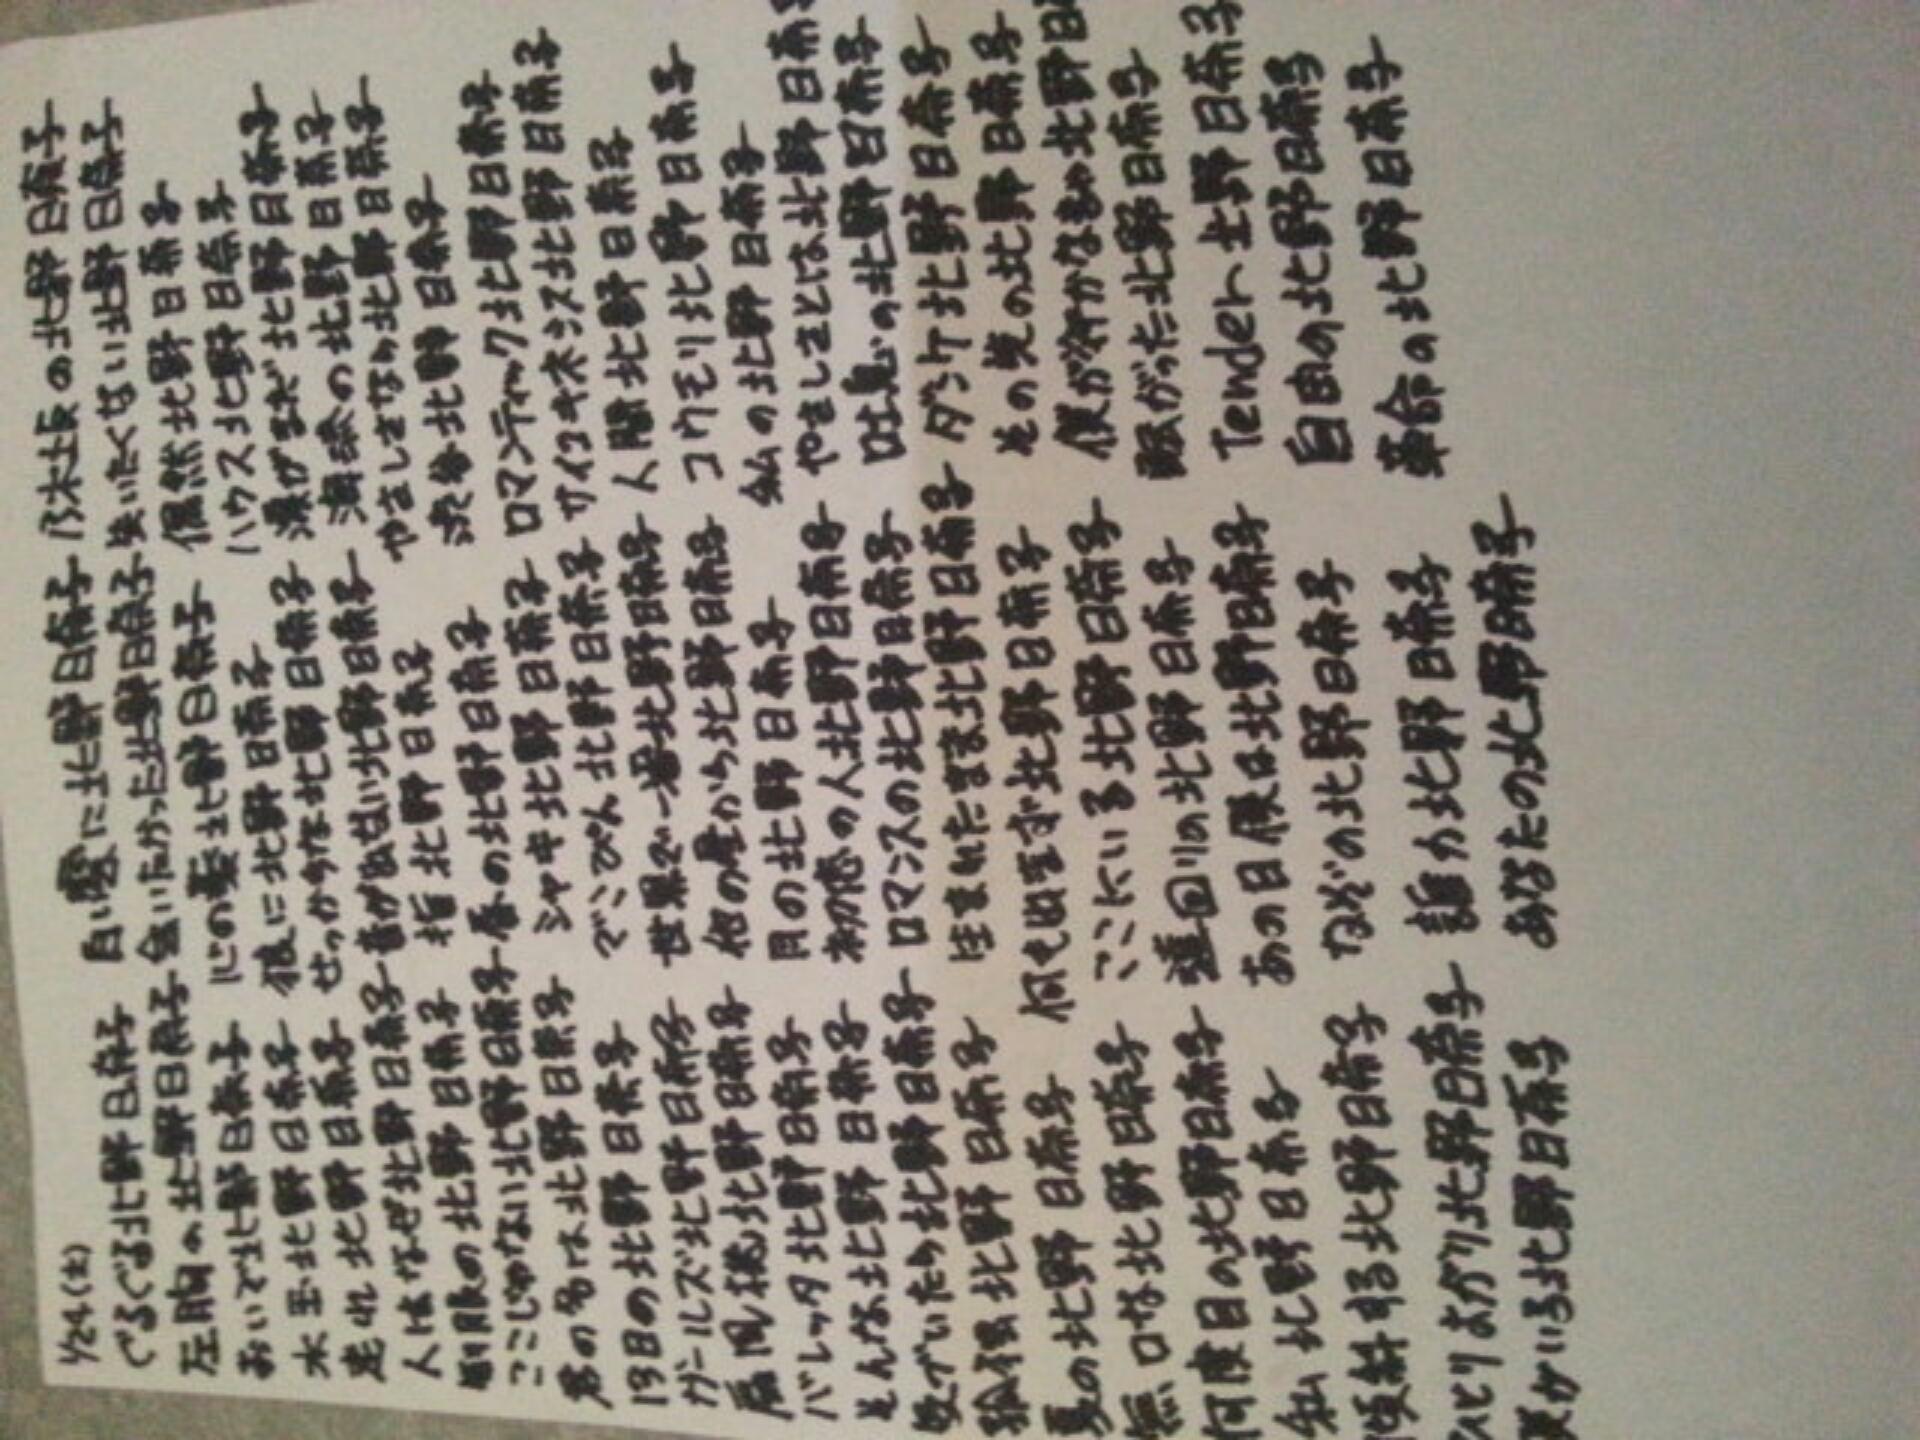 1/24(土)
ぐるぐる北野日奈子 白い雲に北野日奈子 乃木坂の北野日奈子
左胸の北野日奈子 会いたかった北野日奈子 失いたくない北野日奈子
おいで北野日奈子 心の薬北野日奈子 偶然北野日奈子
水玉北野日奈子 狼に北野日奈子 ハウス北野日奈子
走れ北野日奈子 せっかちな北野日奈子 涙がまだ北野日奈子
人はなぜ北野日奈子 音が出ない北野日奈子 海流の北野日奈子
制服の北野日奈子 指北野日奈子 やさしさなら北野日奈子
ここじゃない北野日奈子 春の北野日奈子 渋谷北野日奈子
君の名は北野日奈子 シャキ北野日奈子 ロマンティック北野日奈子
13日の北野日奈子 でこぴん北野日奈子 サイコキネシス北野日奈子
ガールズ北野日奈子 世界で一番北野日奈子 人間北野日奈子
扇風機北野日奈子 他の星から北野日奈子 コウモリ北野日奈子
バレッタ北野日奈子 月の北野日奈子 私の北野日奈子
そんな北野日奈子 初恋の人北野日奈子 やさしさとは北野日奈子
気づいたら北野日奈子 ロマンスの北野日奈子 吐息の北野日奈子
孤独北野日奈子 生まれたまま北野日奈子 ダンケ北野日奈子
夏の北野日奈子 何もできず北野日奈子 その先の北野日奈子
無口な北野日奈子 ここにいる北野日奈子 僕が行かなきゃ北野日
何度目の北野日奈子 遠回りの北野日奈子 転がった北野日奈子
私北野日奈子 あの日僕は北野日奈子 Tender北野日奈子
傾斜する北野日奈子 なぞの北野日奈子 自由の北野日奈子
ひとりよがり北野日奈子 誰か北野日奈子 革命の北野日奈子
かいる北野日奈子 あなたの北野日奈子